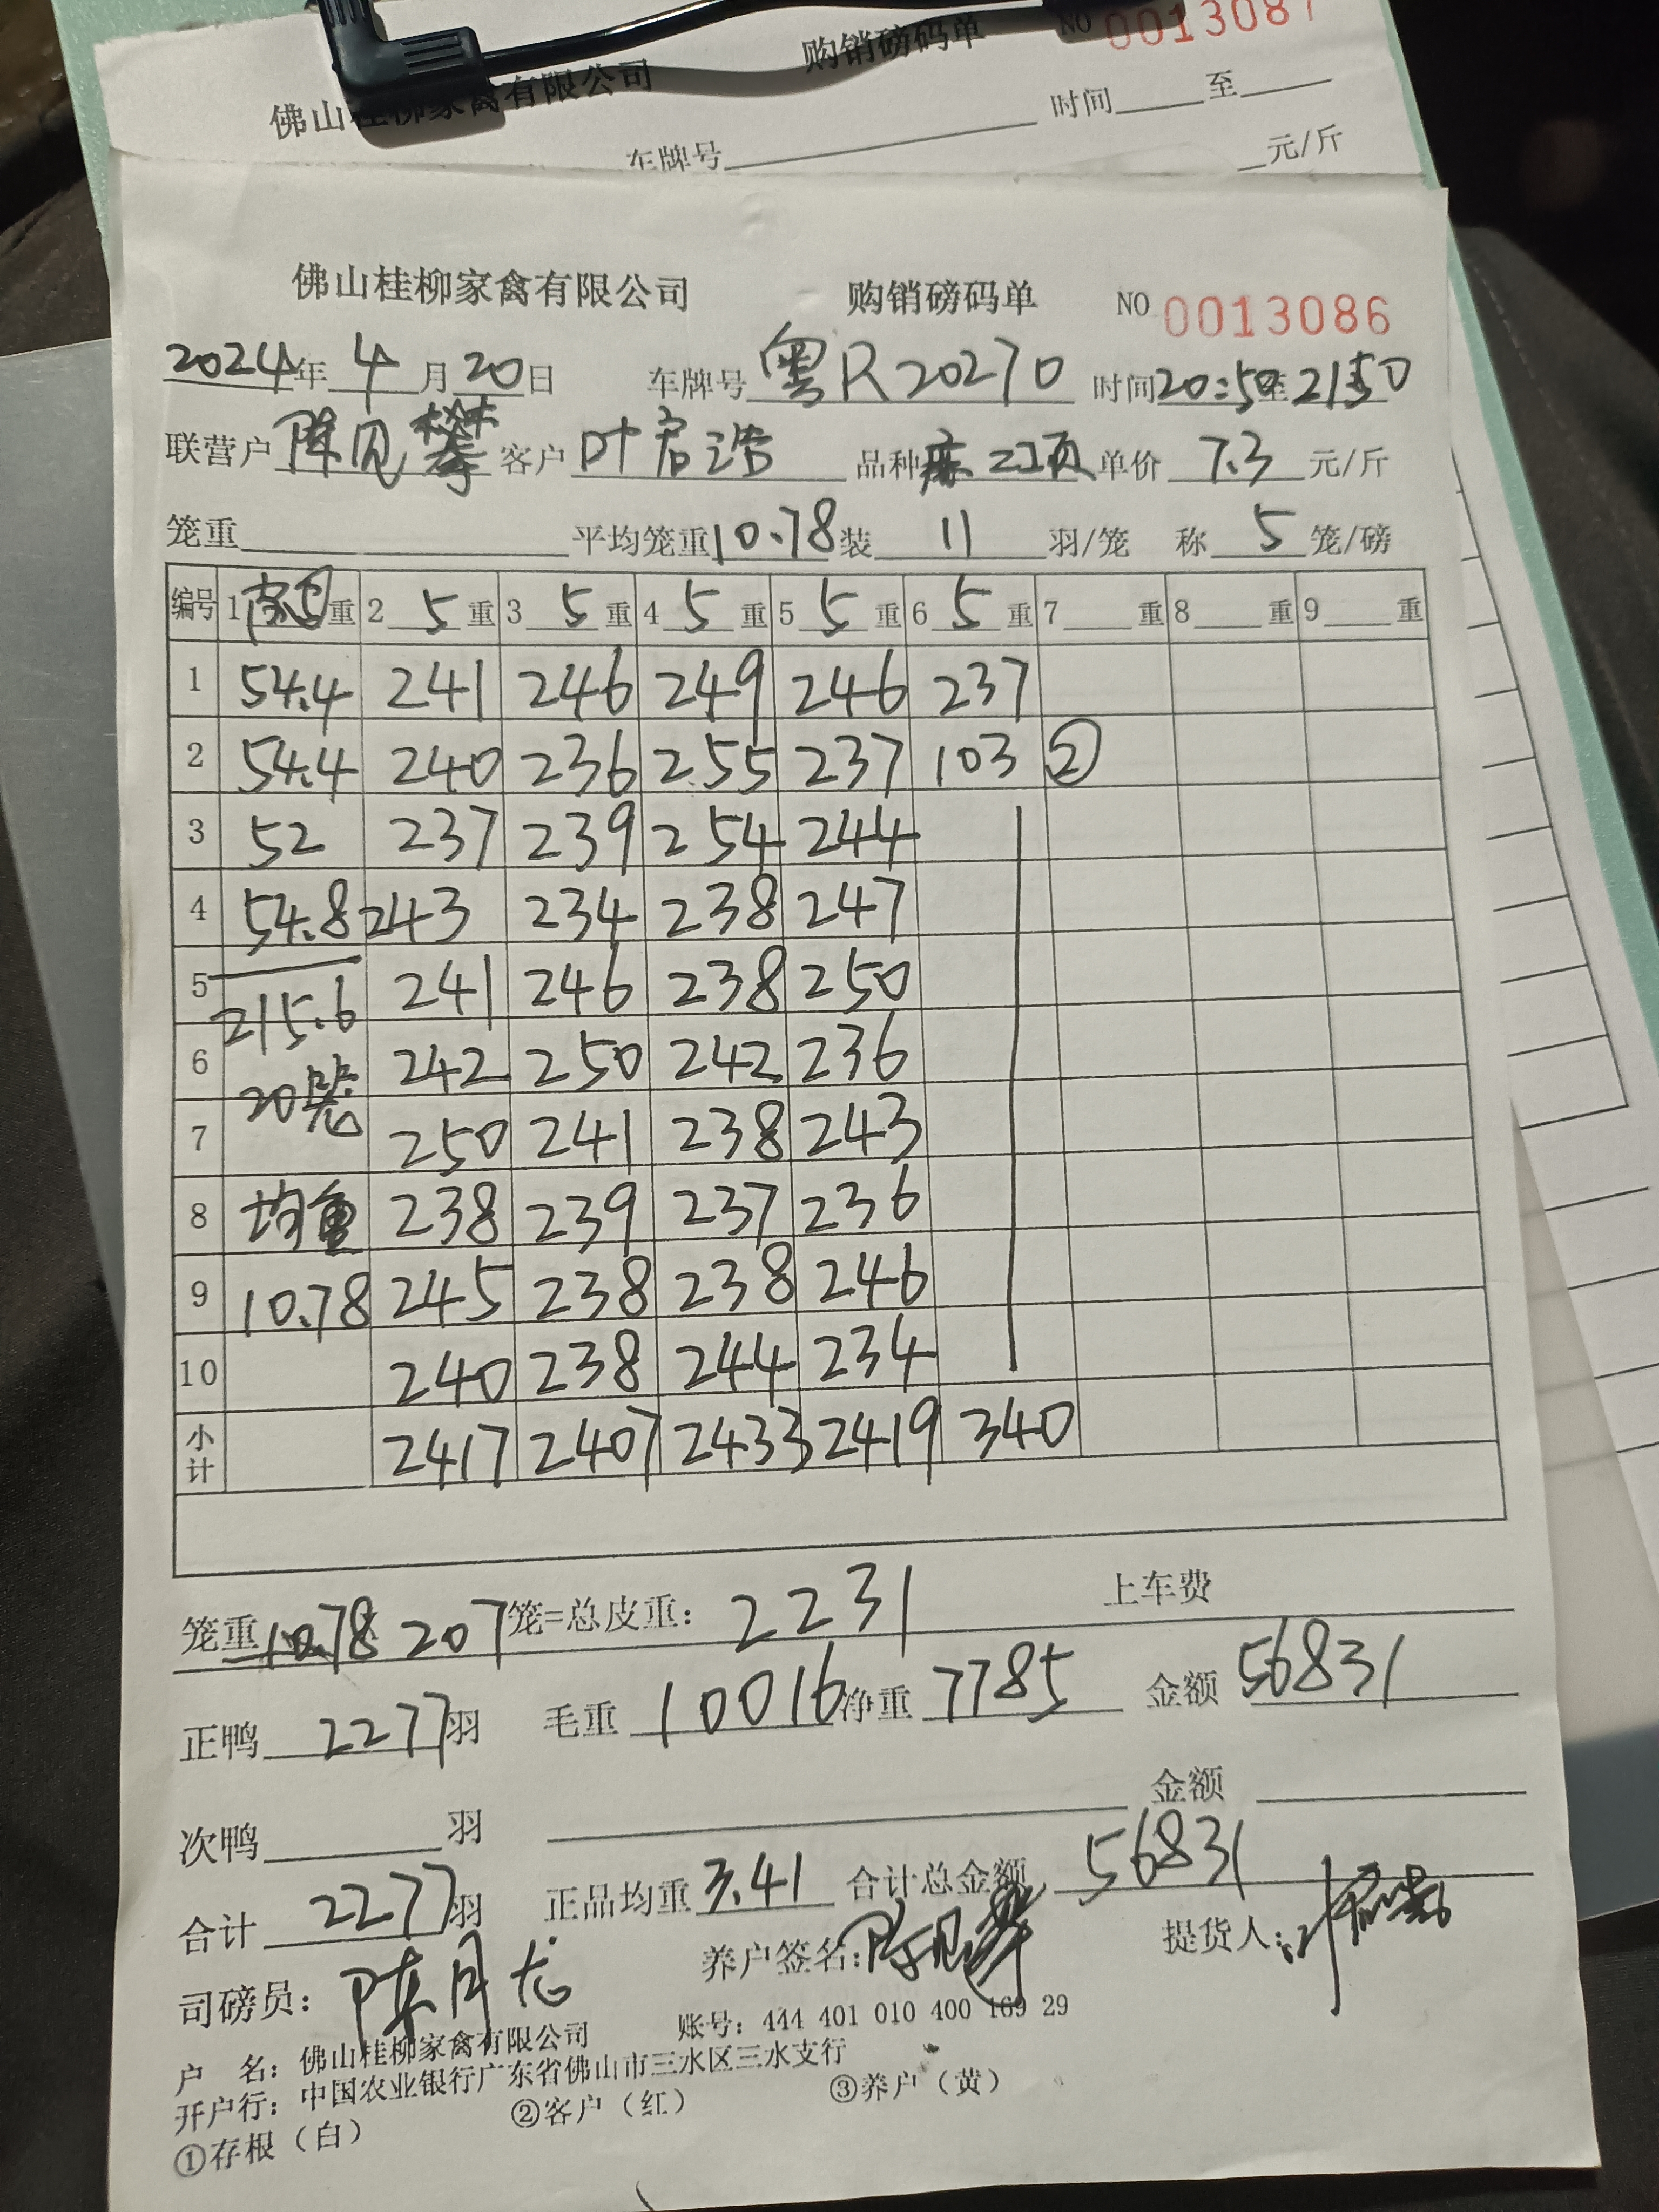 佛山桂柳家禽有限公司 购销磅码单 NO 0013087
车牌号 时间 至
元/斤
佛山桂柳家禽有限公司 购销磅码单 NO 0013086
2024年4月20日 车牌号 粤R20270 时间20:50至21:50
联营户 陈见攀 客户 叶启浩 品种 麻 项 单价 7.3 元/斤
笼重 平均笼重10.78装 11 羽/笼 称 5 笼/磅
编号 1 ⑤重 2 5 重 3 5 重 4 5 重 5 5 重 6 5 重 7 重 8 重 9 重
1 54.4 241 246 249 246 237
2 54.4 240 236 255 237 103 ②
3 52 237 239 254 244
4 54.8 243 234 238 247
5 215.6 241 246 238 250
6 20笼 242 250 242 236
7 250 241 238 243
8 均重 238 239 237 236
9 10.78 245 238 238 246
10 240 238 244 234
小计 2417 2407 2433 2419 340
笼重10.78 207笼=总皮重: 2231 上车费
正鸭 2277羽 毛重 10016 净重 7785 金额 56831
次鸭 羽 金额
合计 2277羽 正品均重 3.41 合计总金额 56831
司磅员: 陈月龙 养户签名:陈见攀 提货人:叶启浩
户 名: 佛山桂柳家禽有限公司 账号: 444 401 010 400 169 29
开户行: 中国农业银行广东省佛山市三水区三水支行
①存根（白） ②客户（红） ③养户（黄）